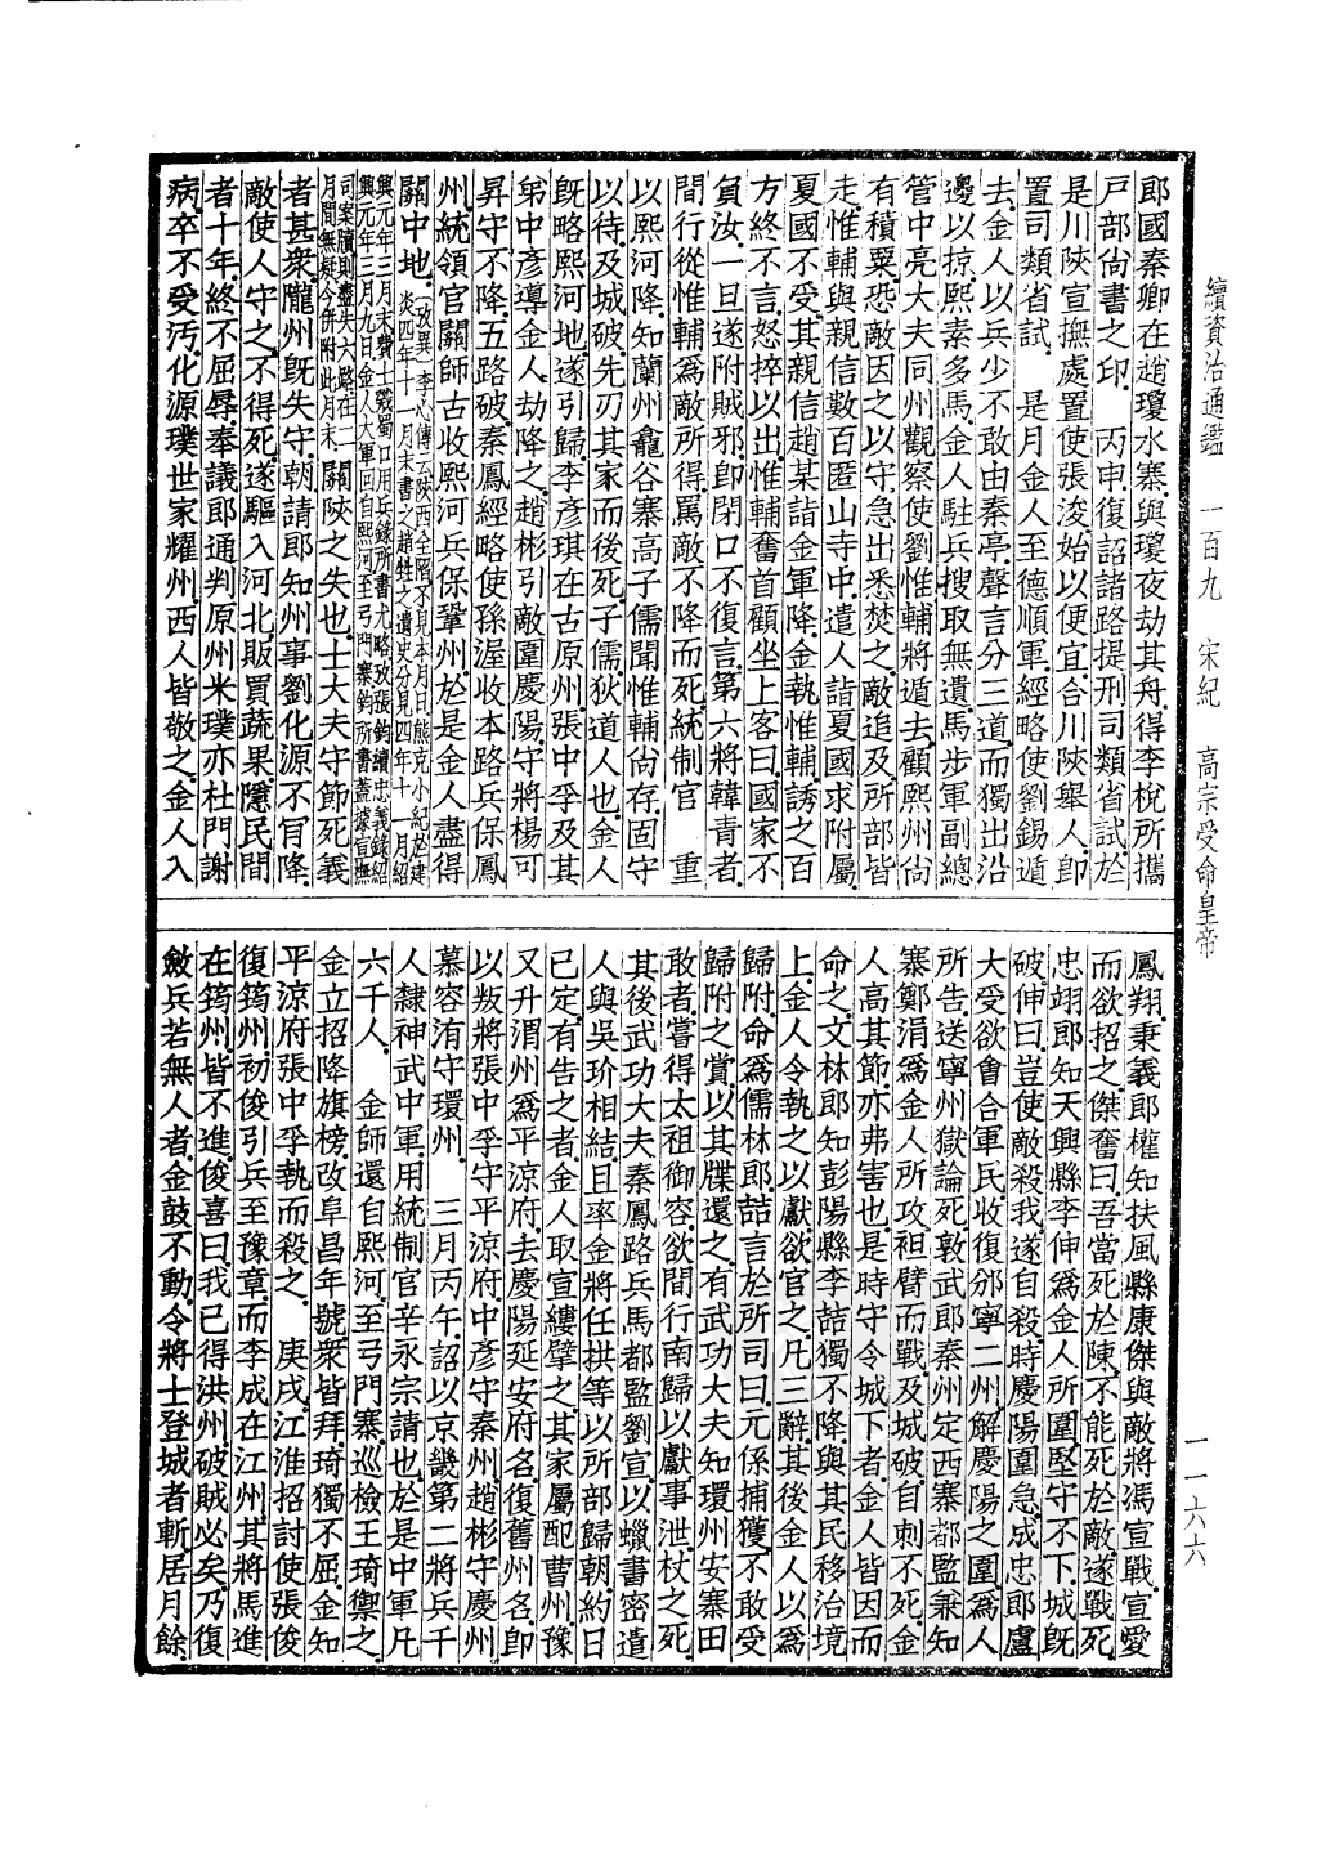 續資治通鑑　一百九　宋紀　高宗受命皇帝
一一六六
郎國秦卿在趙瓊水寨與瓊夜劫其舟得李梲所攜
戸部尙書之印　丙申復詔諸路提刑司類省試於
是川陝宣撫處置使張浚始以便宜合川陝舉人卽
置司類省試　是月金人至德順軍經略使劉錫遁
去金人以兵少不敢由秦亭聲言分三道而獨出沿
邊以掠熙素多馬金人駐兵搜取無遺馬步軍副總
管中亮大夫同州觀察使劉惟輔將遁去顧熙州尙
有積粟恐敵因之以守急出悉焚之敵追及所部皆
走惟輔與親信數百匿山寺中遣人詣夏國求附屬
夏國不受其親信趙某詣金軍降金執惟輔誘之百
方終不言怒捽以出惟輔奮首顧坐上客曰國家不
負汝一旦遂附賊邪卽閉口不復言第六將韓青者
間行從惟輔爲敵所得罵敵不降而死統制官　重
以熙河降知蘭州龕谷寨高子儒聞惟輔尙存固守
以待及城破先刃其家而後死子儒狄道人也金人
旣略熙河地遂引歸李彥琪在古原州張中孚及其
弟中彥導金人劫降之趙彬引敵圍慶陽守將楊可
昇守不降五路破秦鳳經略使孫渥收本路兵保鳳
州統領官關師古收熙河兵保鞏州於是金人盡得
關中地（攷異）李心傳云陝西全陷不見本月日熊克小紀於建
炎四年十一月末書之趙甡之遺史分見四年十一月紹
興元年三月末費士戣蜀口用兵錄所書尤略攷張鈞續忠義錄紹
興元年三月九日金人大軍回自熙河至弓門寨鈞所書蓋據宣撫
司案牘則盡失六路在二
月間無疑今併附此月末關陝之失也士大夫守節死義
者甚衆隴州旣失守朝請郎知州事劉化源不肎降
敵使人守之不得死遂驅入河北販買蔬果隱民間
者十年終不屈辱奉議郎通判原州米璞亦杜門謝
病卒不受汚化源璞世家耀州西人皆敬之金人入
鳳翔秉義郎權知扶風縣康傑與敵將馮宣戰宣愛
而欲招之傑奮曰吾當死於陳不能死於敵遂戰死
忠翊郎知天興縣李伸爲金人所圍堅守不下城旣
破伸曰豈使敵殺我遂自殺時慶陽圍急成忠郎盧
大受欲會合軍民收復邠寧二州解慶陽之圍爲人
所告送寧州獄論死敦武郎秦州定西寨都監兼知
寨鄭涓爲金人所攻袒臂而戰及城破自刺不死金
人高其節亦弗害也是時守令城下者金人皆因而
命之文林郎知彭陽縣李喆獨不降與其民移治境
上金人令執之以獻欲官之凡三辭其後金人以爲
歸附命爲儒林郎喆言於所司曰元係捕獲不敢受
歸附之賞以其牒還之有武功大夫知環州安寨田
敢者嘗得太祖御容欲間行南歸以獻事泄杖之死
其後武功大夫秦鳳路兵馬都監劉宣以蠟書密遣
人與吳玠相結且率金將任拱等以所部歸朝約日
已定有告之者金人取宣縷擘之其家屬配曹州豫
又升渭州爲平涼府去慶陽延安府名復舊州名卽
以叛將張中孚守平涼府中彥守秦州趙彬守慶州
慕容洧守環州　三月丙午詔以京畿第二將兵千
人隸神武中軍用統制官辛永宗請也於是中軍凡
六千人　金師還自熙河至弓門寨巡檢王琦禦之
金立招降旗榜改阜昌年號衆皆拜琦獨不屈金知
平涼府張中孚執而殺之　庚戌江淮招討使張俊
復筠州初俊引兵至豫章而李成在江州其將馬進
在筠州皆不進俊喜曰我已得洪州破賊必矣乃復
斂兵若無人者金鼓不動令將士登城者斬居月餘